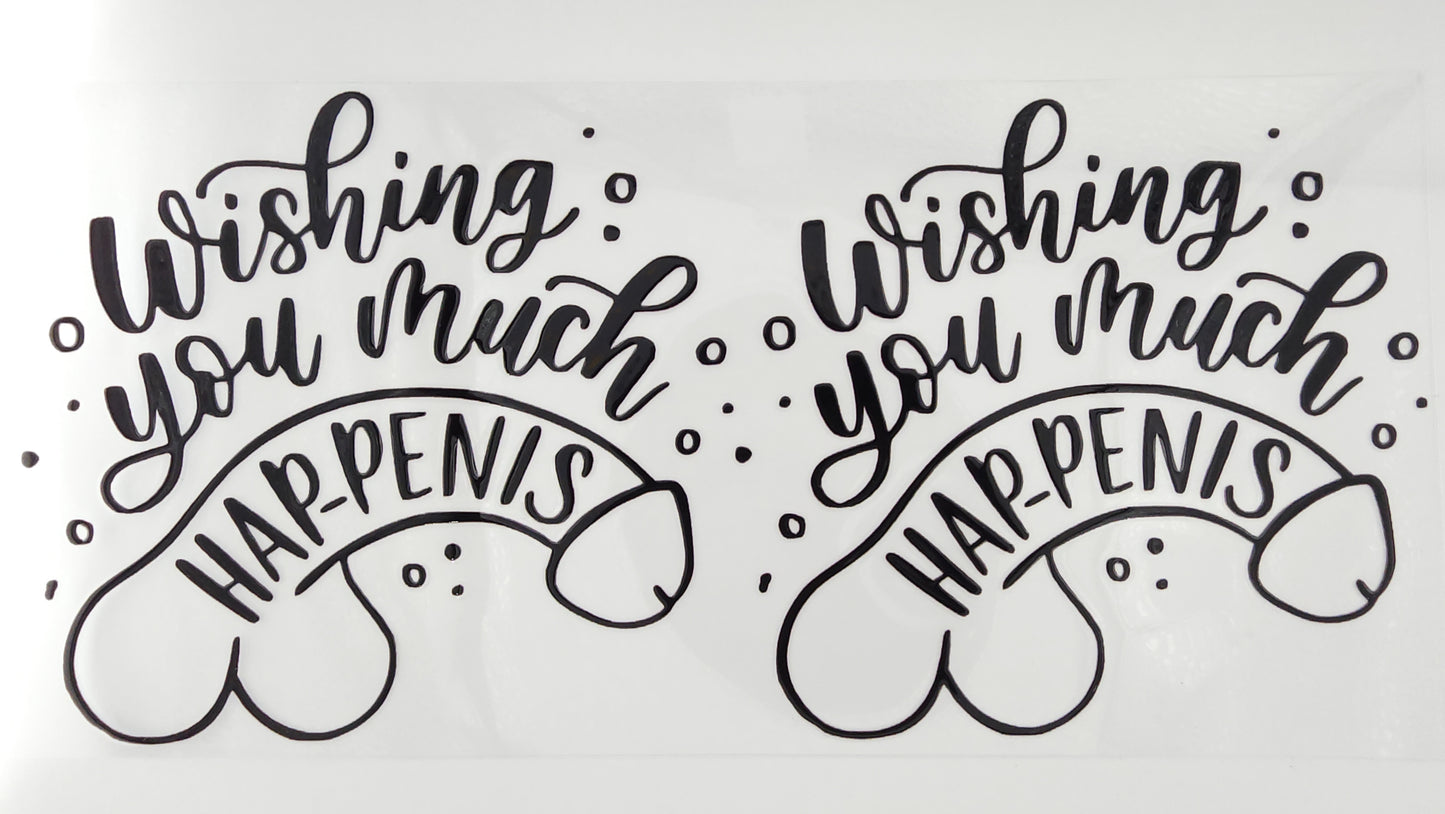 Wishing
you much
HAP-PENIS
Wishing
you much
HAP-PENIS